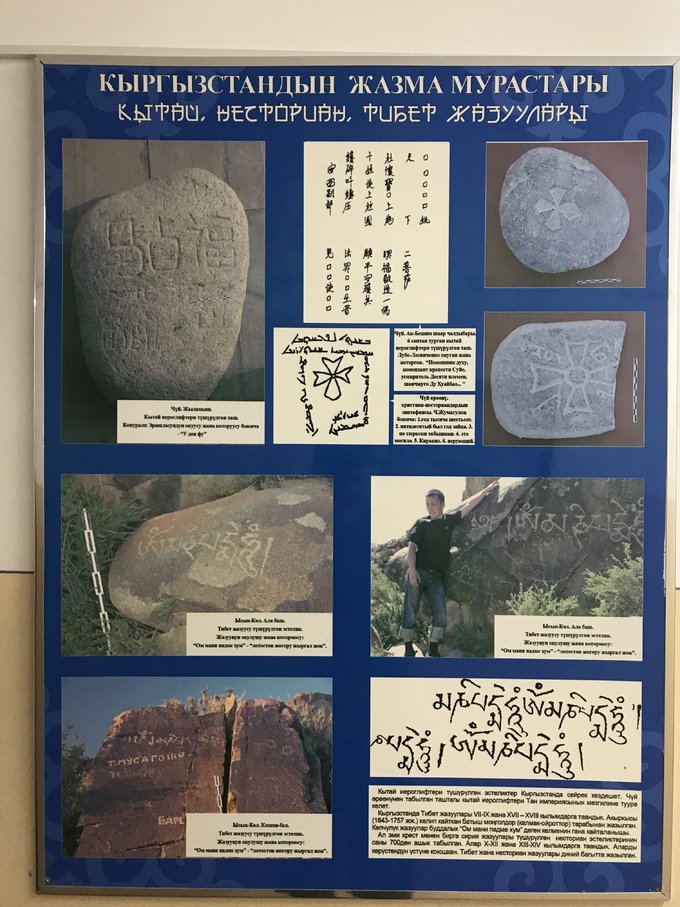 КЫРГЫЗСТАНДЫН ЖАЗМА МУРАСТАРЫ
КЫТАЙ, НЕСТОРИАН, ТИБЕТ ЖАЗУУЛАРЫ
安西副都
護碎葉鎮压
十姓使上柱國
杜懷寶□上為
天 下
見□□使□□
法界□□生普
願平安獲其
瞑福敬造一佛
二菩薩
Чүй. Жыламыш.
Кытай иероглифтери түшүрүлгөн таш.
Конуралп Эржиласундун окуусу жана которуусу боюнча
- "У дои фу"
Чүй. Ак-Бешим шаар чалдыбары.
6 саптан турган кытай
иероглифтери түшүрүлгөн таш.
Лубо-Лесниченко окуган жана
которгон. "Помощник духу,
комендант крепости Суйе,
усмиритель Десяти племен,
шанчжуго Ду Хуайбао.. "
Чүй өрөөнү.
христиан-несториандардын
эпитафиясы. Ч.Жумагулов
боюнча: 1.год тысяча шестьсот.
2. пятидесятый был год зайца. 3.
по тюркски табышкан. 4. это
могила. 5. Кириакиз. 6. верующий.
ཨོཾམཎིཔདྨེཧཱུྃ
Ысык-Көл. Ала баш.
Тибет жазуусу түшүрүлгөн эстелик.
Жазуунун окулушу жана котормосу:
"Ом мани падме хум" - "лотостон жогору жыргал жок".
ཨོཾམཎིཔདྨེཧཱུྃ
Ысык-Көл. Ала баш.
Тибет жазуусу түшүрүлгөн эстелик.
Жазуунун окулушу жана котормосу:
"Ом мани падме хум" - "лотостон жогору жыргал жок".
Т.МУСАГОЖО
БАРС
Ысык-Көл. Коскон-бел.
Тибет жазуусу түшүрүлгөн эстелик.
Жазуунун окулушу жана котормосу:
"Ом мани падме хум" - "лотостон жогору жыргал жок".
མཎིཔདྨེཧཱུྃ་ཨོཾམཎིཔདྨེཧཱུྃ།
ཎིཔདྨེཧཱུྃ།ཨོཾམཎིཔདྨེཧཱུྃ།
Кытай иероглифтери түшүрүлгөн эстеликтер Кыргызстанда сейрек кездешет. Чүй
өрөөнүнөн табылган таштагы кытай иероглифтери Тан империясынын мезгилине туура
келет.
Кыргызстанда Тибет жазуулары VII-IX жана XVII – XVIII кылымдарга таандык. Акыркысы
(1643-1757 жж.) келип кайткан батыш моңголдор (калмак-ойроттор) тарабынан жазылган.
Көпчүлүк жазуулар буддалык "Ом мани падме хум" деген келменин гана кайталанышы.
Ал эми крест менен бирге сирия жазуулары түшүрүлгөн несториан эстеликтеринин
саны 700дөн ашык табылган. Алар X-XII жана XIII-XIV кылымдарга таандык. Аларды
көрүстөндүн үстүнө коюшкан. Тибет жана несториан жазуулары диний багытта жазылган.